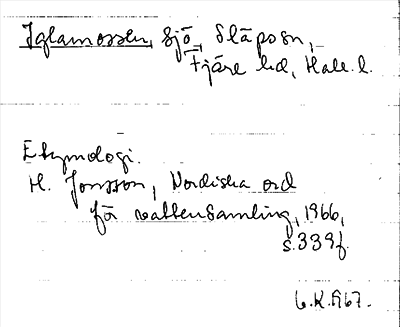 Iglamossen, sjö, Släp sn,
Fjäre hd, Hall. l.
Etymologi.
H. Jonsson, Nordiska ord
för vattensamling, 1966,
s. 339 f.
1967.